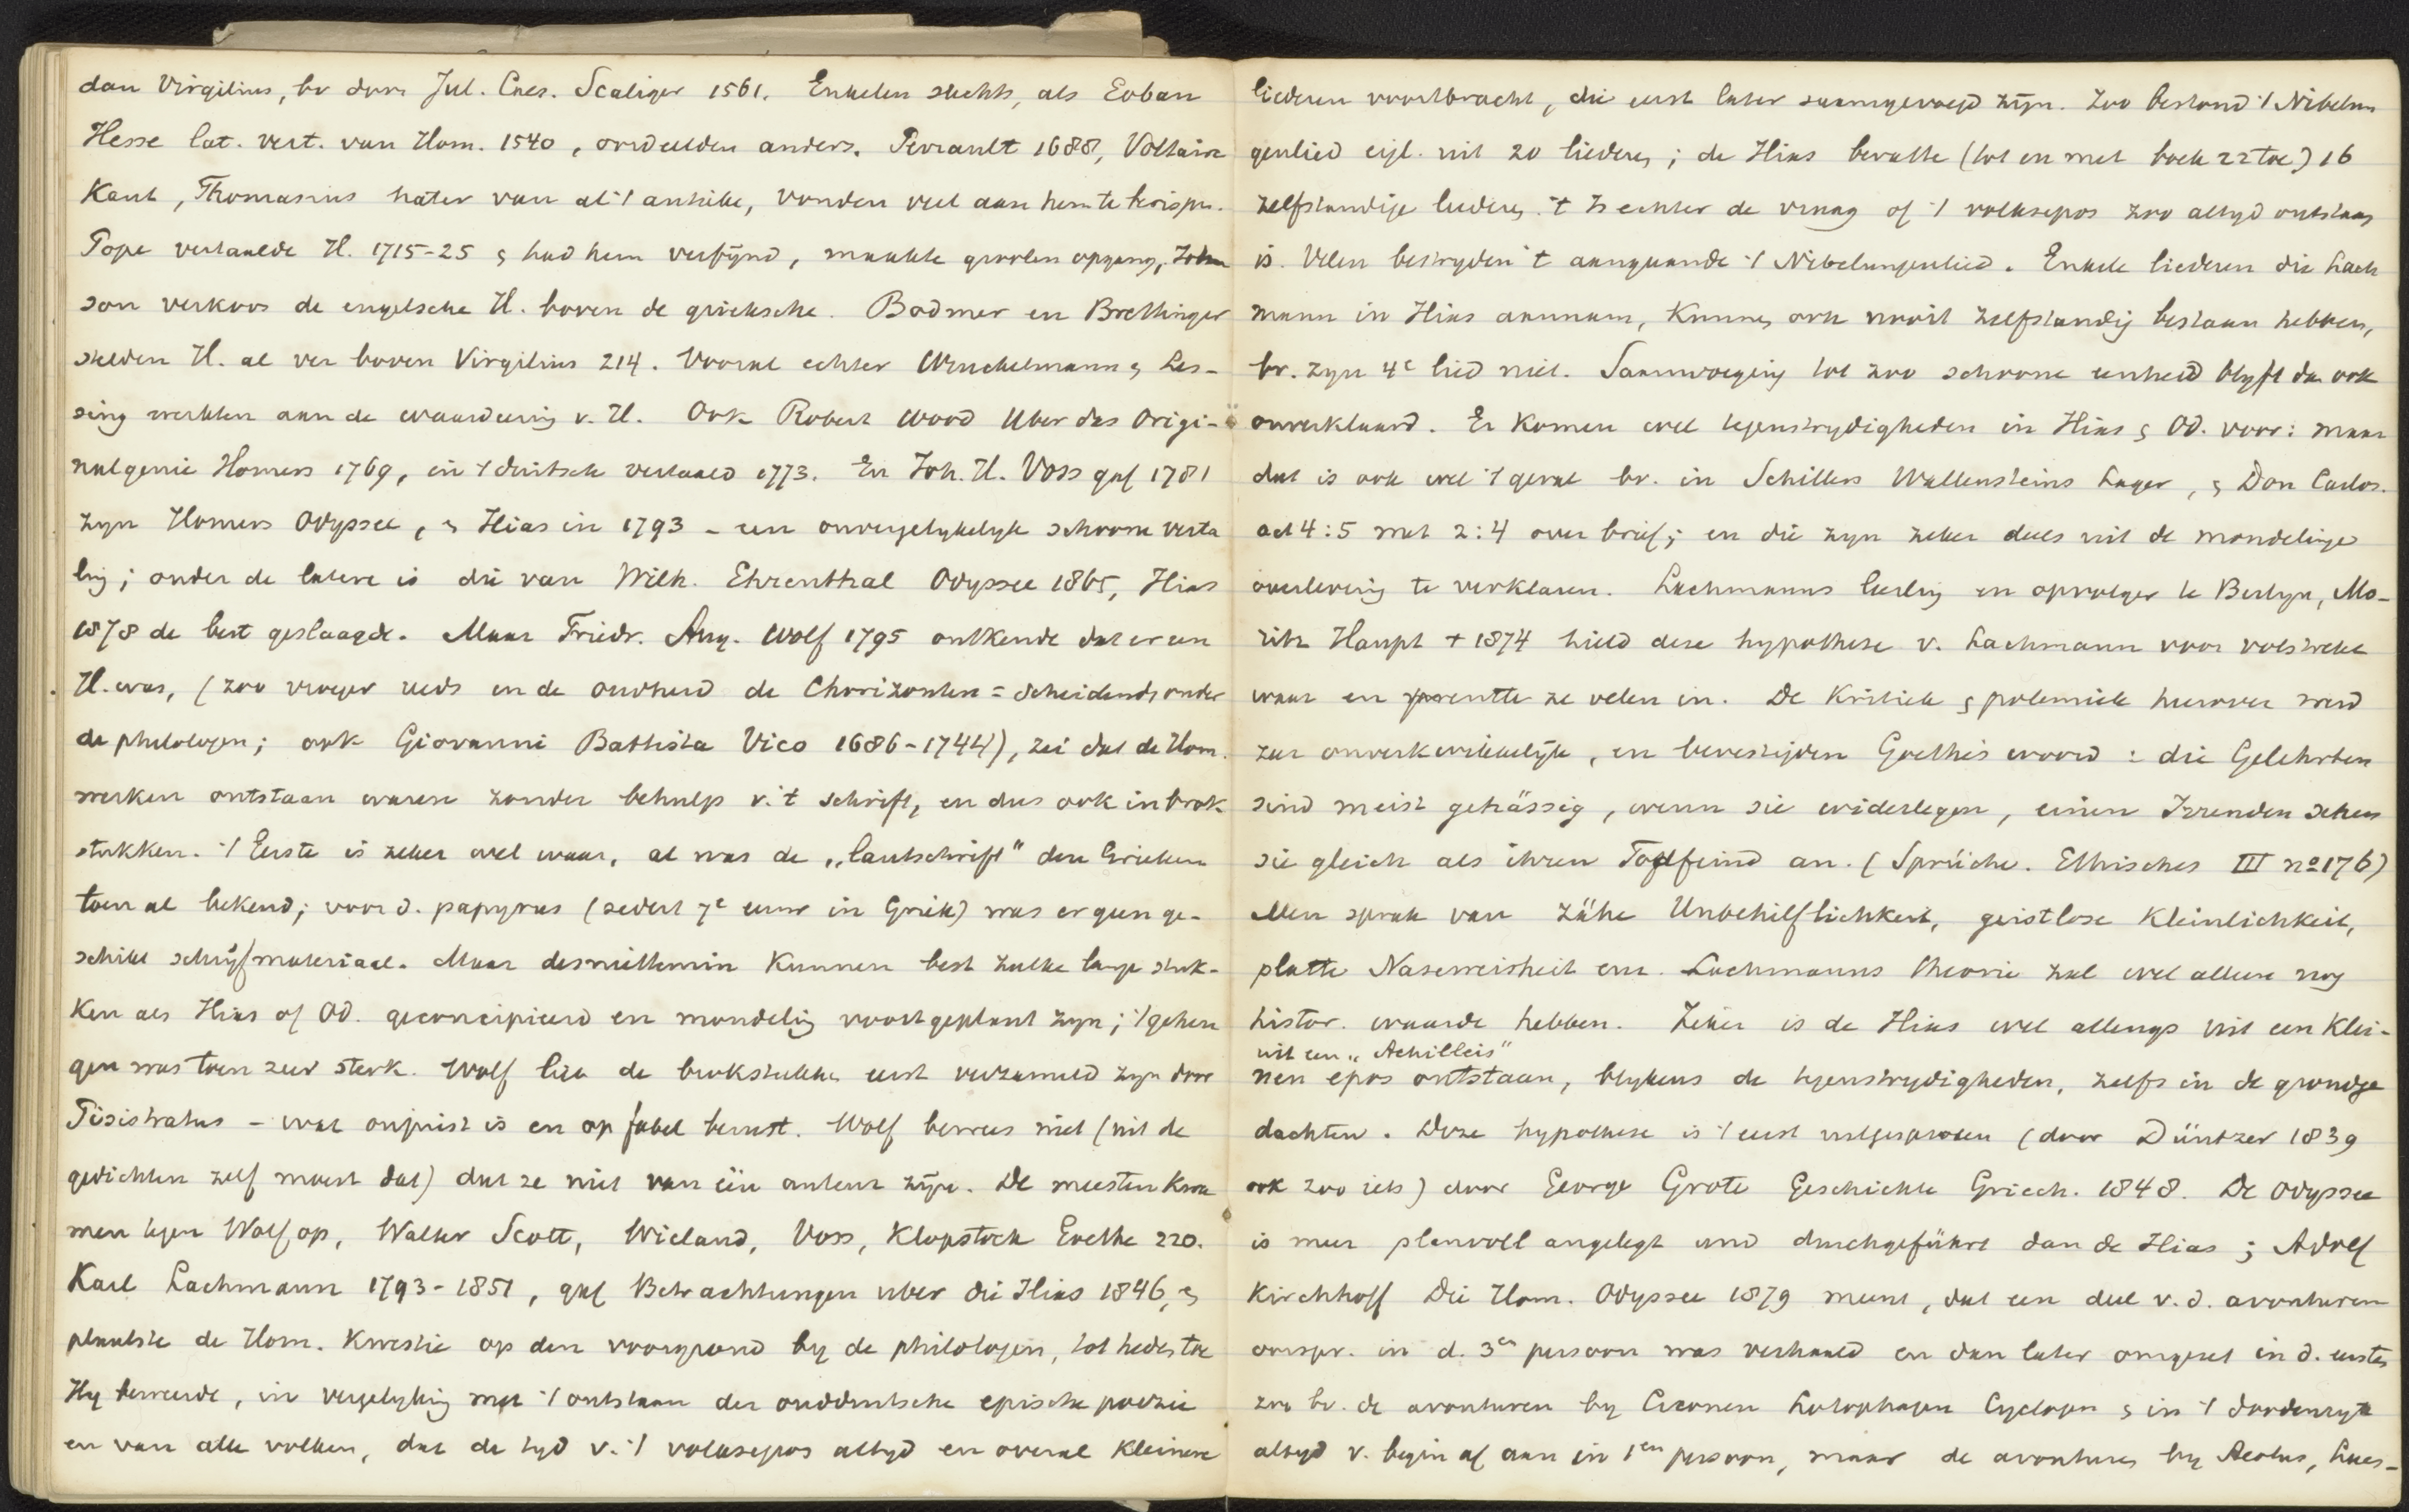 dan Virgilius, bv door Jul. Caes. Scaliger 1561. Enkelen slechts, als Eoban
Hesse lat. vert. van Hom. 1540, oordeelden anders. Perrault 1688, Voltaire
Kant, Thomasius hater van al 't antieke, vonden veel aan hem te berispen.
Pope vertaalde H. 1715-25 & had hem verfijnd, maakte grooten opgang, John
son verkoos de engelsche H. boven de grieksche. Bodmer en Breitinger
stelden H. al ver boven Virgilius 214. Vooral echter Winckelmann & Les-
sing werkten aan de waardeering v. H. Ook Robert Wood Uber das Origi-
nalgenie Homers 1769, in 't duitsch vertaald 1773. En Joh. H. Voss gaf 1781
zyn Homers Odyssee, & Ilias in 1793 - een onvergelykelyk schoone verta
ling; onder de latere is die van Wilh. Ehrenthal Odyssee 1865, Ilias
1878 de best geslaagde. Maar Friedr. Aug. Wolf 1795 ontkende dat er een
H. was, (zoo vroeger reeds in de oudheid de Chorizonten = scheidende onder
de philologen; ook Giovanni Battista Vico 1686-1744), zei dat de Hom.
werken ontstaan waren zonder behulp v. 't schrift, en dus ook in brok
stukken. 't Eerste is zeker wel waar, al was de "lautschrift" den Grieken
toen al bekend; voor d. papyrus (sedert 7e eeuw in Griek) was er geen ge-
schikt schrijfmateriaal. Maar desniettemin kunnen best zulke lange stuk-
ken als Ilias of Od. geconcipieerd en mondeling voortgeplant zyn; 't geheu
gen was toen zeer sterk. Wolf liet de brokstukken eerst verzameld zyn door
Pisistratus - wat onjuist is en op fabel berust. Wolf bewees niet (uit de
gedichten zelf moest dat) dat ze niet van één auteur zijn. De meesten kwa
men tegen Wolf op, Walter Scott, Wieland, Voss, Klopstock Goethe 220.
Karl Lachmann 1793-1851, gaf Betrachtungen uber die Ilias 1846, &
plaatste de Hom. kwestie op den voorgrond by de philologen, tot heden toe
Hy beweerde, in vergelyking met 't ontstaan der oudduitsche epische poëzie
en van alle volken, dat de tyd v. 't volksepos altyd en overal kleinere
liederen voortbracht, die eerst later saamgevoegd zijn. Zoo bestond 't Nibelun
genlied eigl. uit 20 liederen; de Ilias bevatte (tot en met boek 22 toe) 16
zelfstandige liederen. 't Is echter de vraag of 't volksepos zoo altyd ontstaan
is. Velen bestryden 't aangaande 't Nibelungenlied. Enkele liederen die Lach
mann in Ilias aannam, kunnen ook nooit zelfstandig bestaan hebben,
bv. zyn 4e lied niet. Saamvoeging tot zoo schoone eenheid blyft dan ook
onverklaard. Er komen wel tegenstrydigheden in Ilias & Od. voor: maar
dat is ook wel 't geval bv. in Schillers Wallensteins Lager, & Don Carlos.
act 4:5 met 2:4 over brief; en die zyn zeker deels uit de mondelinge
overlevering te verklaren. Lachmanns leerling en opvolger te Berlyn, Mo-
ritz Haupt + 1874 hield deze hypothese v. Lachmann voor volstrekt
waar en prentte ze velen in. De kritiek & polemiek hierover werd
zeer onverkwikkelijk, en bevestigden Goethe's woord: die Gelehrten
sind meist gehässig, wenn sie widerlegen, einen Irrenden sehen
sie gleich als ihren Todfeind an. (Sprüche. Ethisches III no 176)
Men sprak van zähe Unbehilflichkeit, geistlose Kleinlichkeit,
platte Naseweisheit enz. Lachmanns theorie zal wel alleen nog
histor. waarde hebben. Zeker is de Ilias wel allengs uit een klei-
uit een "Achilleis"
nen epos ontstaan, blykens de tegenstrydigheden, zelfs in de grondge
dachten. Deze hypothese is 't eerst uitgesproken (door Düntzer 1839
ook zoo iets) door George Grote Geschichte Griech. 1848. De Odyssee
is meer planvoll angelegt und durchgeführt dan de Ilias; Adolf
Kirchhoff Die Hom. Odyssee 1879 meent, dat een deel v. d. avonturen
oorspr. in d. 3en persoon was verhaald en dan later omgezet in d. eersten
zoo bv. de avonturen by Ciconen Lotophagen Cyclopen & in 't doodenryk
altyd v. begin af aan in 1en persoon, maar de avonturen by Aeolus, Laes-